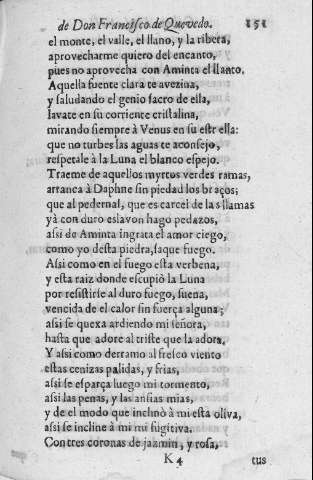 de Don Francisco de Quevedo. 151
el monte, el valle, el llano, y la ribera,
aprovecharme quiero del encanto,
pues no aprovecha con Aminta el llanto.
Aquella fuente clara te avezina,
y saludando el genio sacro de ella,
lavate en su corriente cristalina,
mirando siempre à Venus en su estrella:
que no turbes las aguas te aconsejo,
respetale à la Luna el blanco espejo.
Traeme de aquellos myrtos verdes ramas,
arranca à Daphne sin piedad los braços;
que al pedernal, que es carcel de las llamas
yà con duro eslavon hago pedazos,
assi de Aminta ingrata el amor ciego,
como yo desta piedra, saque fuego.
Assi como en el fuego esta verbena,
y esta raiz donde escupiò la Luna
por resistirse al duro fuego, suena,
vencida de el calor sin fuerça alguna;
assi se quexa ardiendo mi señora,
hasta que adore al triste que la adora.
Y assi como derramo al fresco viento
estas cenizas palidas, y frias,
assi se esparça luego mi tormento,
assi las penas, y las ansias mias,
y de el modo que inclinò à mi esta oliva,
assi se incline à mi mi fugitiva.
Con tres coronas de jazmin, y rosa,
K 4 tus